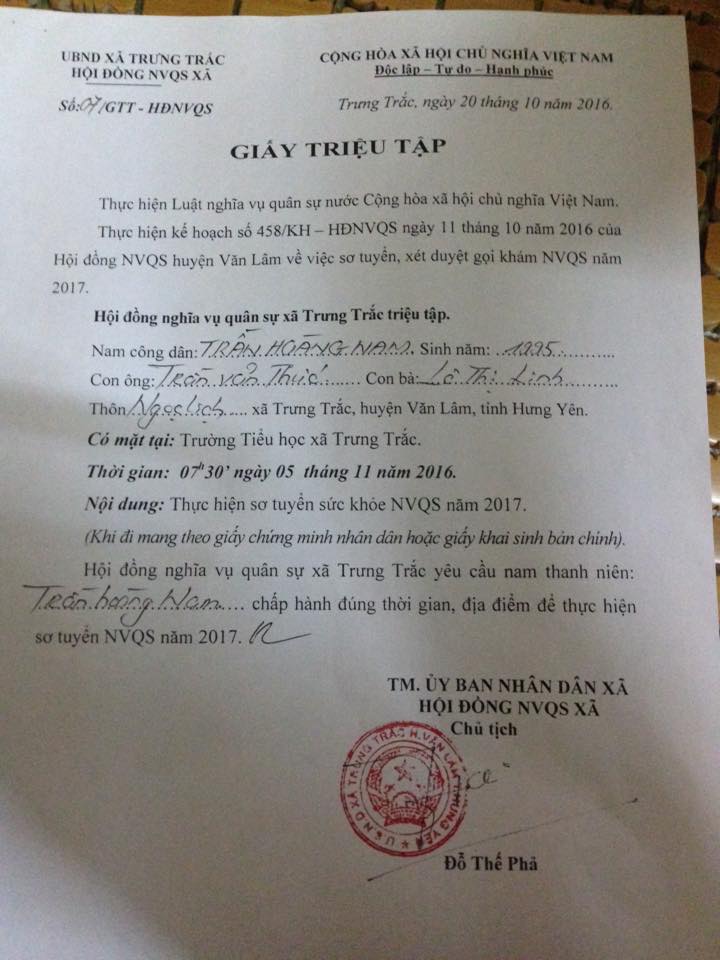 UBND XÃ TRƯNG TRẮC
HỘI ĐỒNG NVQS XÃ
Số:07/GTT - HĐNVQS
CỘNG HÒA XÃ HỘI CHỦ NGHĨA VIỆT NAM
Độc lập – Tự do – Hạnh phúc
Trưng Trắc, ngày 20 tháng 10 năm 2016.
GIẤY TRIỆU TẬP
Thực hiện Luật nghĩa vụ quân sự nước Cộng hòa xã hội chủ nghĩa Việt Nam.
Thực hiện kế hoạch số 458/KH – HĐNVQS ngày 11 tháng 10 năm 2016 của
Hội đồng NVQS huyện Văn Lâm về việc sơ tuyển, xét duyệt gọi khám NVQS năm
2017.
Hội đồng nghĩa vụ quân sự xã Trưng Trắc triệu tập.
Nam công dân: TRẦN HOÀNG NAM. Sinh năm: 1995
Con ông: Trần Văn Con bà: Thị Linh
Thôn Ngọc Lịch xã Trưng Trắc, huyện Văn Lâm, tỉnh Hưng Yên.
Có mặt tại: Trường Tiểu học xã Trưng Trắc.
Thời gian: 07h30' ngày 05 tháng 11 năm 2016.
Nội dung: Thực hiện sơ tuyển sức khỏe NVQS năm 2017.
(Khi đi mang theo giấy chứng minh nhân dân hoặc giấy khai sinh bản chính).
Hội đồng nghĩa vụ quân sự xã Trưng Trắc yêu cầu nam thanh niên:
Trần hoàng Nam chấp hành đúng thời gian, địa điểm để thực hiện
sơ tuyển NVQS năm 2017.
TM. ỦY BAN NHÂN DÂN XÃ
HỘI ĐỒNG NVQS XÃ
Chủ tịch
U.B.N.D XÃ TRƯNG TRẮC H.VĂN LÂM T.HƯNG YÊN
Đỗ Thế Phả